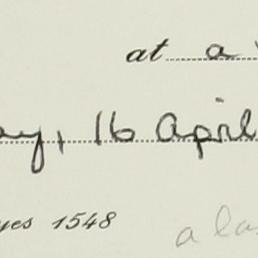 at a
ay, 16 April
yes 1548
a las